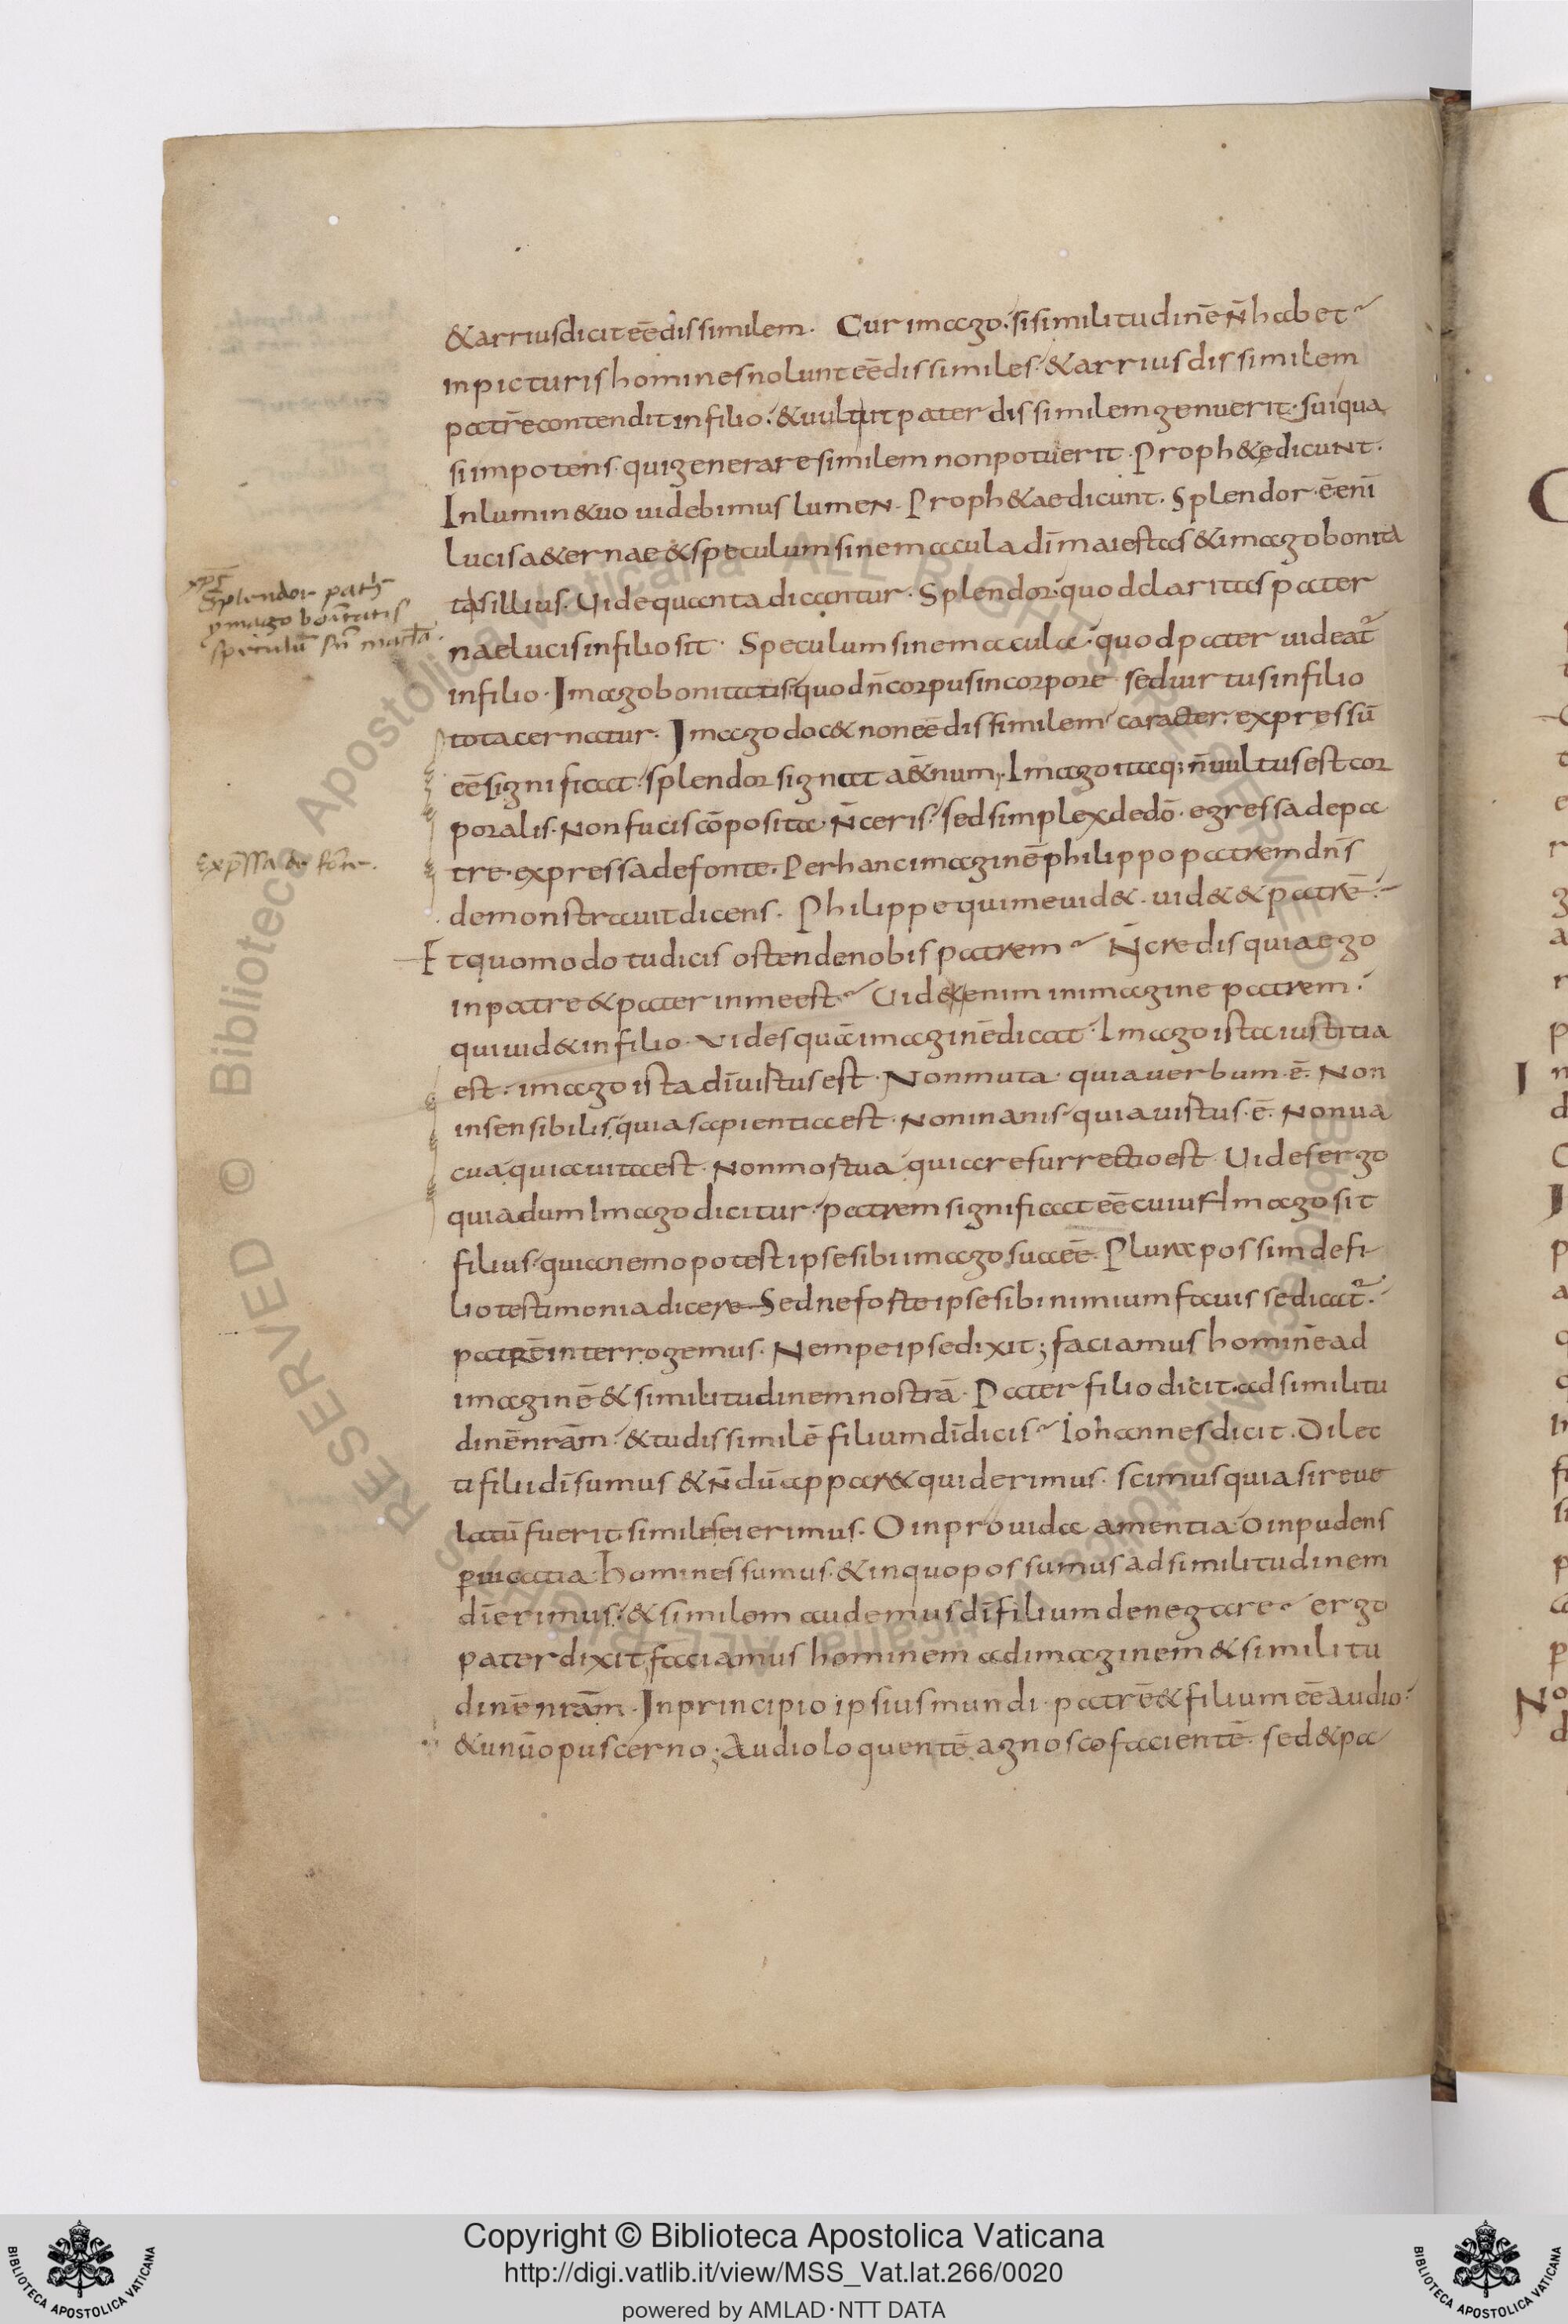 & arrius dicit eē dissimilem. Cur imago. si similitudinē n̄ habet
in picturis homines nolunt eē dissimiles. & arrius dissimilem
patrē contendit in filio. & uult ut pater dissimilem genuerit. sui qua
si impotens. qui generare similem non potuerit. Proph&ę dicunt.
In lumine tuo uidebimus lumen. Proph&ae dicunt. Splendor ē eni
lucis a&ernae & speculum sine macula dī maiestatis & imago bonita
xp̄s
Splendor patris
ymago bōitatis
speculū sn̄ macła
tis illius. Uide quanta dicantur. Splendor. quod claritas pater
nae lucis in filio sit. Speculum sine macula. quod pater uideat̄
in filio. Imago bonitatis. quod n̄ corpus in corpore. sed uirtus in filio
tota cernatur. Imago doc& non eē dissimilem. caracter. expressū
eē significat. splendor signat a&ernum. Imago itaq; n̄ uultus est cor
poralis. Non fucis cōposita. n̄ ceris. sed simplex de dō. egressa de pa
Exp̄ssa de fōte.
tre. expressa de fonte. Per hanc imaginē philippo patrem dn̄s
demonstrauit dicens. Philippe qui me uid&. uid& & patrē.
Et quomodo tu dicis ostende nobis patrem. N̄ credis quia ego
in patre & pater in me est. Uid& enim in imagine patrem.
qui uid& in filio. Vides quā imaginē dicat. Imago ista iustitia
est. imago ista dī uirtus est. Non muta. quia uerbum ē. Non
insensibilis. quia sapientia est. Non inanis. quia uirtus ē. Non ua
cua. quia uita est. Non mortua. quia resurrectio est. Uides ergo
quia dum Imago dicitur. patrem significat eē cuius Imago sit
filius. quia nemo potest ipse sibi imago sua eē. Plura possim de fi
lio testimonia dicere. Sed ne forte ipse sibi nimium fauisse dicat̄.
patrē interrogemus. Nempe ipse dixit; faciamus hominē ad
imaginē & similitudinem nostrā. Pater filio dicit. ad similitu
dinē nrām. & tu dissimilē filium dī dicis. Iohannes dicit. Dilec
ti filii dī sumus & n̄dū appar& quid erimus. scimus quia si reue
latū fuerit similes ei erimus. O inprouida amentia. O inpudens
puicatia. Homines sumus. & in quo possumus ad similitudinem
dī erimus. & similem audemus dī filium denegare. ergo
pater dixit, faciamus hominem ad imaginem & similitu
dinē nrām. In principio ipsius mundi. patrē & filium eē audio.
& unū opus cerno; Audio loquentē. agnosco facientē. sed & pa
Copyright © Biblioteca Apostolica Vaticana
http://digi.vatlib.it/view/MSS_Vat.lat.266/0020
powered by AMLAD·NTT DATA